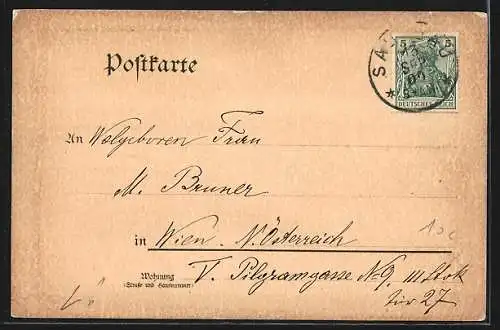 Postkarte
5 5
DEUTSCHES REICH
An Wolgeboren Frau
M. Bruner
in Wien. N. Österreich
Wohnung
(Straße und Hausnummer)
V. Pilgramgasse No 9, III Stok
tür 27